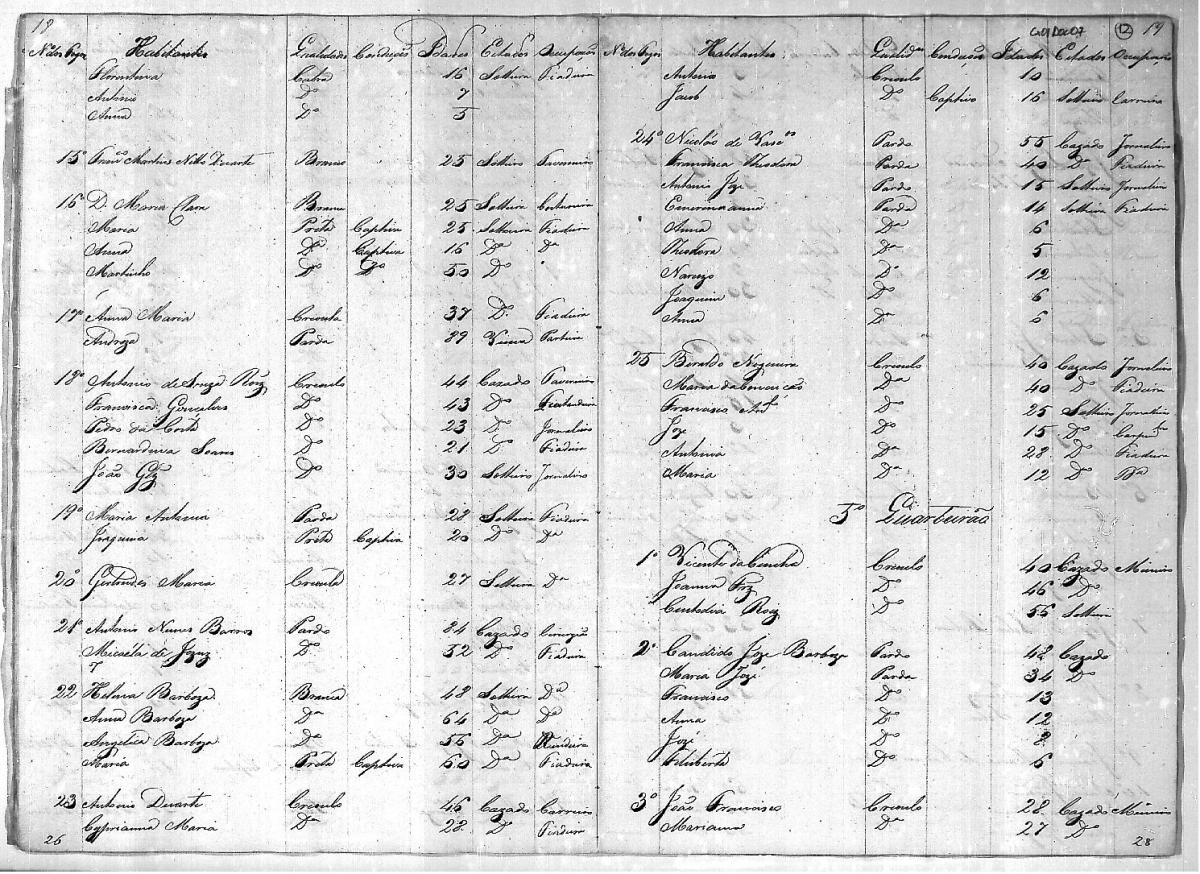 18
Nº dos Fogos Habitantes Qualidades Condições Idades Estados Occupação
Florentina Cabra 16 Solteira Fiadeira
Antonio Dº 7
Anna Dª 5
15º Franco Martins Netto Duarte Branco 25 Solteiro
16º D. Maria Clara Branca 25 Solteira Costureira
Maria Preta Captiva 25 Solteira Fiadeira
Anna Dª Captiva 16 Dª Dª
Martinho Dº Dº 50 Dº
17º Anna Maria Creoula 37 Dª Fiadeira
Andreza Parda 89 Viuva Parteira
18º Antonio de Souza Roiz Creoulo 44 Cazado
Francisca Gonçalves Dª 43 Dª
Pedro da Costa Dº 23 Dº Jornaleiro
Bernardina Soares Dª 21 Dª Fiadeira
João Glz Dº 30 Solteiro Jornaleiro
19º Maria Antonia Parda 28 Solteira Fiadeira
Joaquina Preta Captiva 20 Dª Dª
20º Gertrudes Maria Creoula 27 Solteira Dª
21º Antonio Nunes Barros Pardo 84 Cazado Cirurgião
Micaela de Jezuz Dª 52 Dª Fiadeira
22 Helena Barboza Branca 48 Solteira Dª
Anna Barboza Dª 64 Dª Dª
Angelica Barboza Dª 56 Dª Rendeira
Maria Preta Captiva 60 Dª Fiadeira
23 Antonio Duarte Creoulo 46 Cazado Carreiro
Cyprianna Maria Dª 28 Dª Fiadeira
26
CX01D0C07 12 19
Nº dos Fogos Habitantes Qualidades Condições Idades Estados Occupação
Antonio Creoulo 10
Jacob Dº Captivo 16 Solteiro Carreiro
24º Nicolós de Vascos Pardo 55 Cazado Jornaleiro
Francisca Theodora Parda 40 Dª Fiadeira
Antonio Joze Pardo 15 Solteiro Jornaleiro
Parda 14 Solteira Fiadeira
Anna Dª 6
Theodora Dª 5
Narcizo Dº 12
Joaquim Dº 6
Anna Dª 6
25 Beraldo Nogueira Creoulo 40 Cazado Jornaleiro
Maria da Conceicão Dª 40 Dª Fiadeira
Francisco Anto Dº 25 Solteiro Jornaleiro
Joze Dº 15 Dº
Antonia Dª 28 Dª Fiadeira
Maria Dª 12 Dª Dª
5º Quarteirão
1º Vicente da Cunha Creoulo 40 Cazado Mineiro
Joanna Frz Dª 46 Dª
Custodia Roiz Dª 56 Solteira
2º Candido Joze Barboza Pardo 42 Cazado
Maria Joze Parda 34 Dª
Francisco Dº 13
Anna Dª 12
Joze Dº 8
Feliberto Dº 6
3º João Francisco Creoulo 28 Cazado Mineiro
Marianna Dª 27 Dª
28